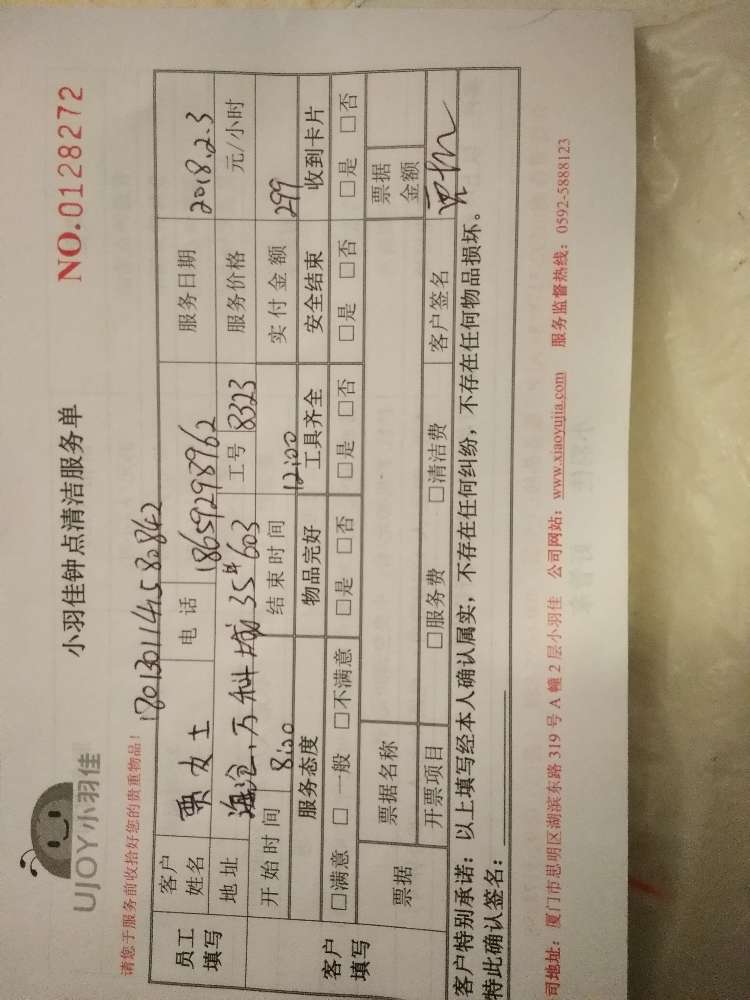 UJOY小羽佳
小羽佳钟点清洁服务单
NO.0128272
请您于服务前收拾好您的贵重物品！
1801301141580842
员工填写 客户姓名 栗女士 电话 18659298962 服务日期 2018.2.3
地址 海沧，万科城35#603 工号 8323 服务价格 元/小时
开始时间 8:00 结束时间 12:00 实付金额 299
客户填写 服务态度 物品完好 工具齐全 安全结束 收到卡片
□满意 □一般 □不满意 □是 □否 □是 □否 □是 □否 □是 □否
票据 票据名称 票据金额
开票项目 □服务费 □清洁费 客户签名
客户特别承诺：以上填写经本人确认属实，不存在任何纠纷，不存在任何物品损坏。
特此确认签名：
司地址：厦门市思明区湖滨东路 319 号 A 幢 2 层小羽佳 公司网站：www.xiaoyujia.com 服务监督热线：0592-5888123